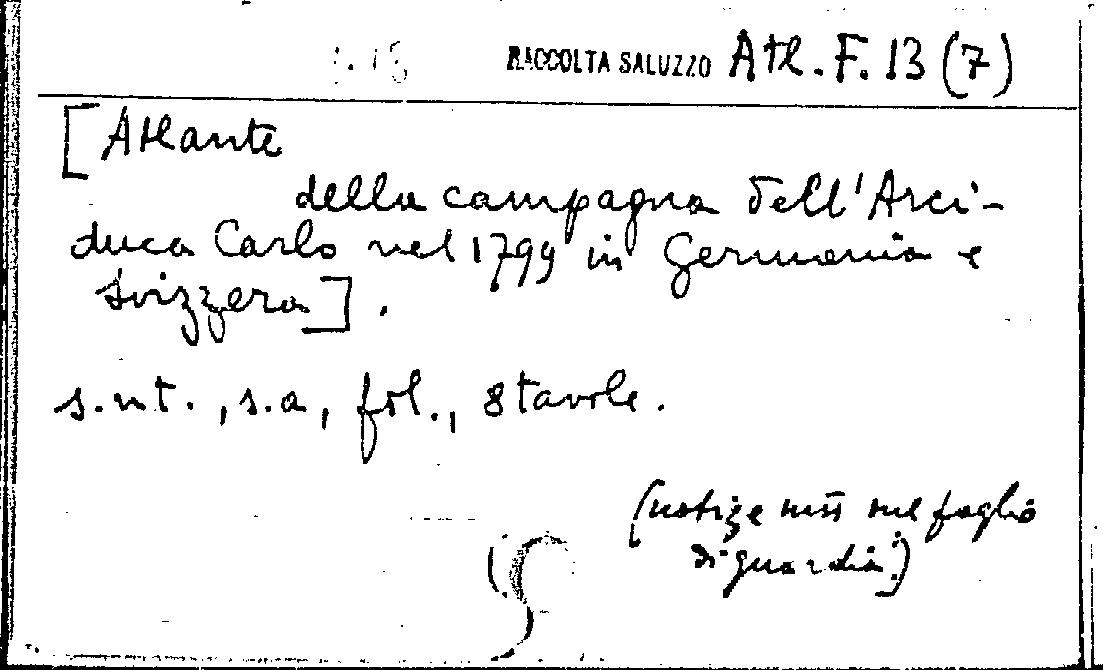 RACCOLTA SALUZZO Atl. F. 13 (7)
[Atlante
della campagna dell'Arci-
duca Carlo nel 1799 in Germania e
Svizzera].
s.nt., s.a, fol., 8 tavole.
(notize mss sul foglio
di guardia)